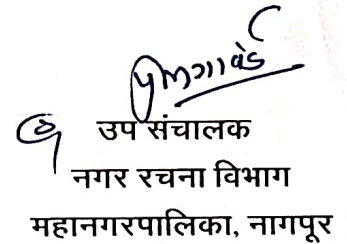 उप संचालक
नगर रचना विभाग
महानगरपालिका, नागपूर